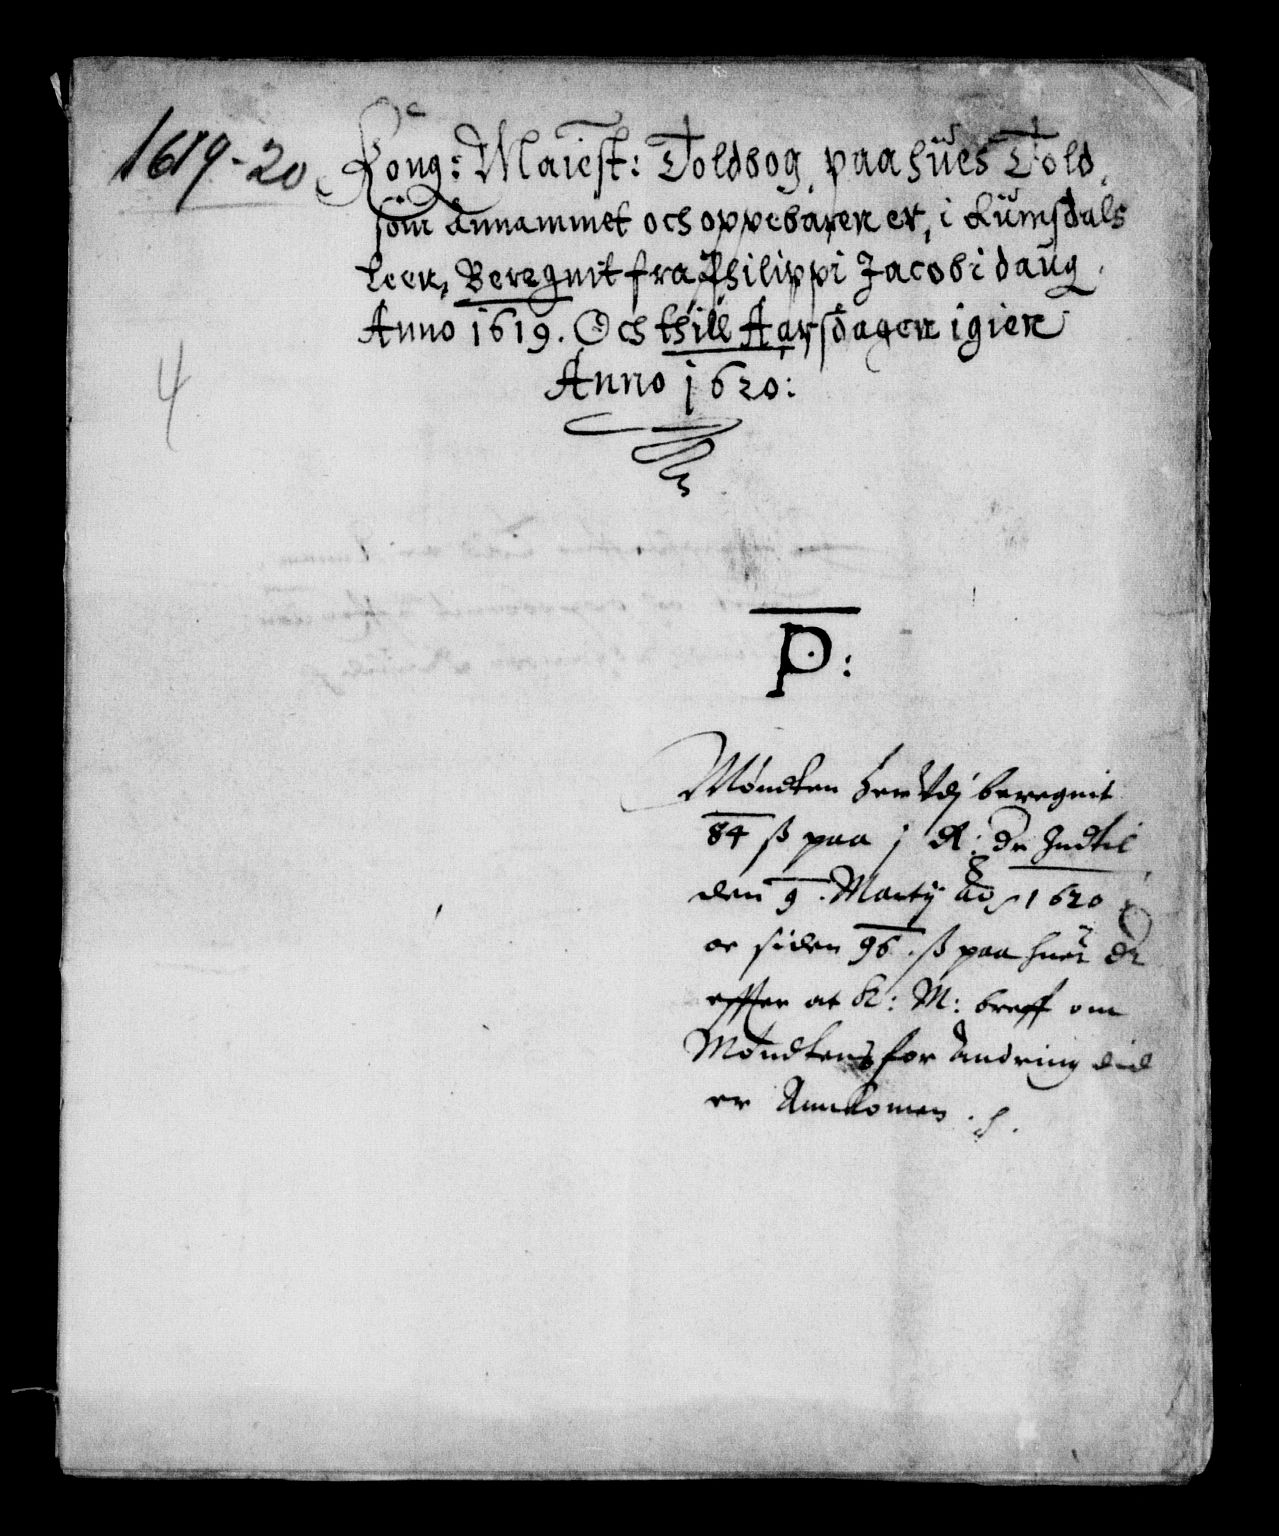 1619-20
Kong: Maiest: Toldbog, paa hües Told,
som Annammet och oppebaren er, i Lumsdals
Leen, Beregnit fra Philippi Jacobi daug
Anno 1619. Och thill Aarsdagen igien
Anno 1620:
4
P:
Møndten her Vdj beregnit
84 ß paa j dr: dr Indtil
den 9. Marty Ao 1620
oc siden 96. ß paa huer dr
effter at K: M: breff om
Møndtens for Andring did
er Ankomen.